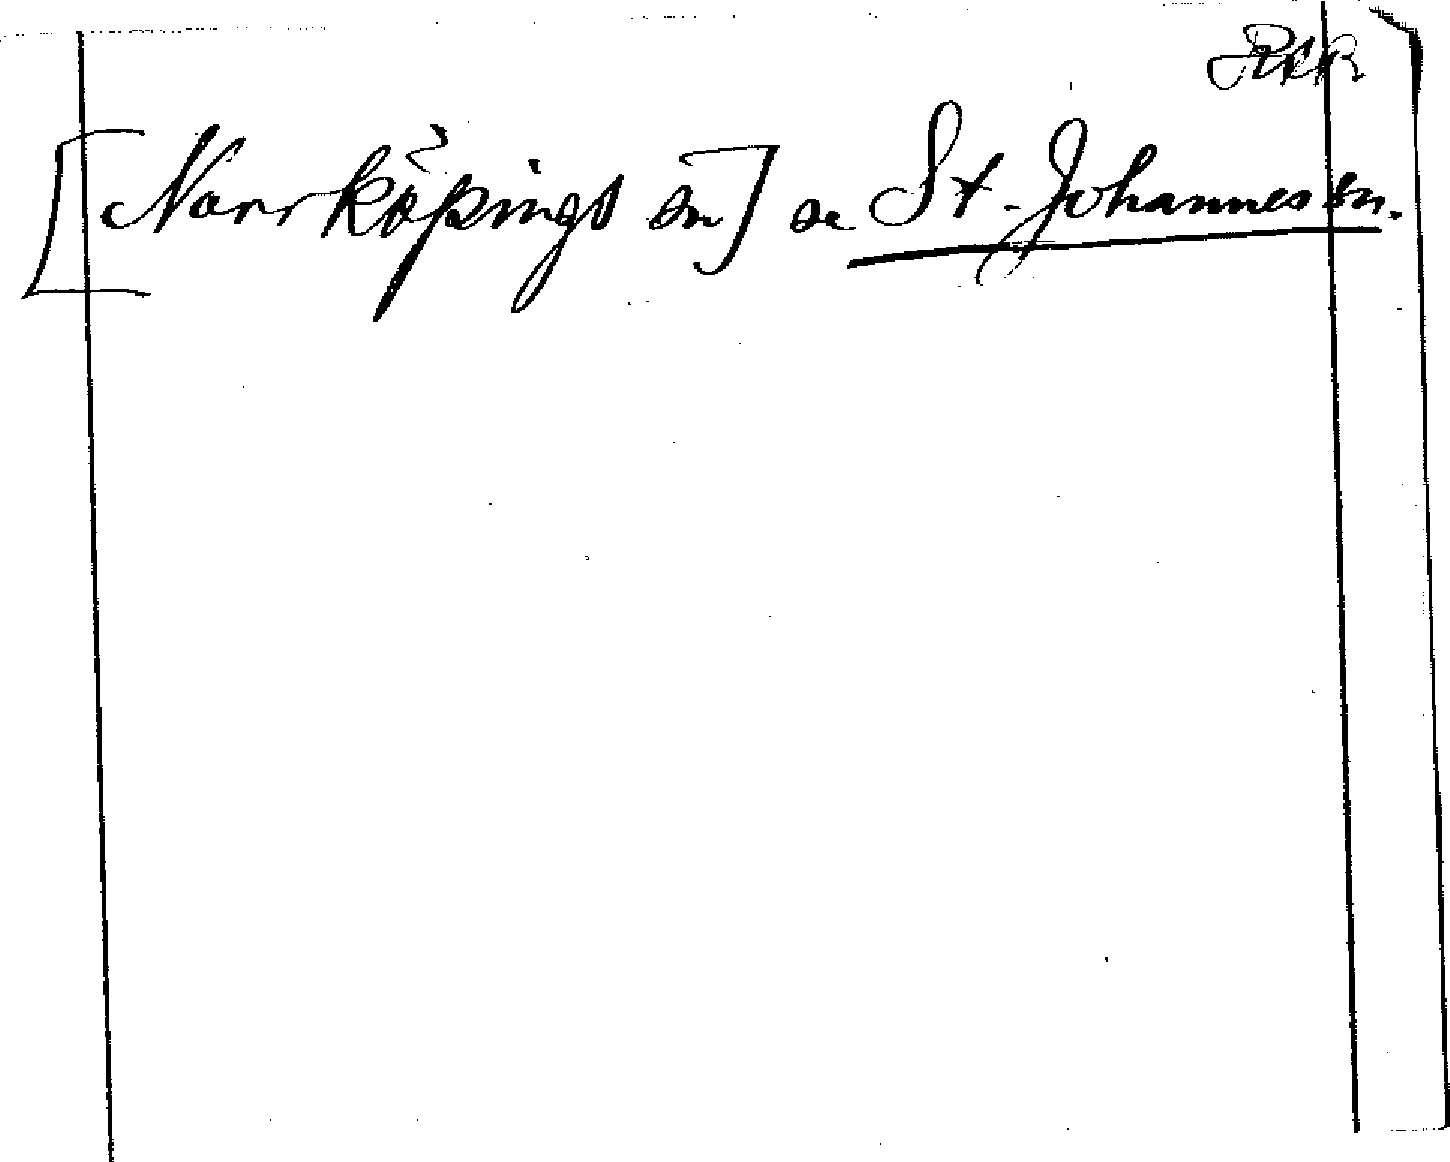 [Norrköpings sn] se St. Johannes sn.